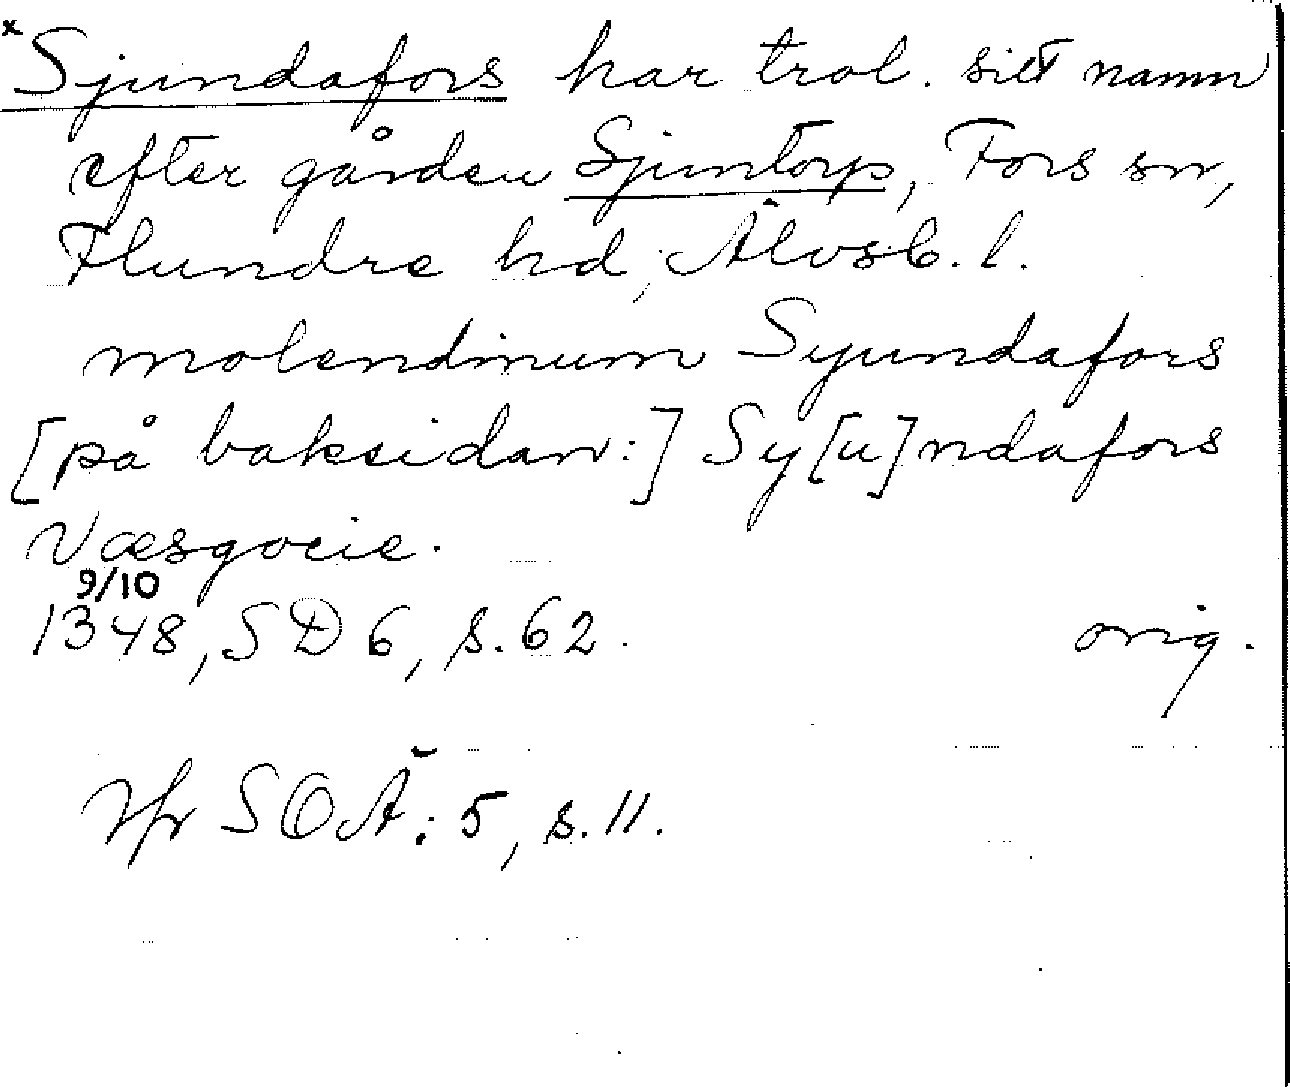 x Sjundafors har trol. sitt namn
efter gården Sjuntorp, Fors sn,
Flundre hd, Älvsb. l.
molendinum Syundafors
[på baksidan:] Sy[u]ndafors
Væsgocie.
9/10
1348, SD 6, s. 62. orig.
Jfr SOÄ: 5, s. 11.